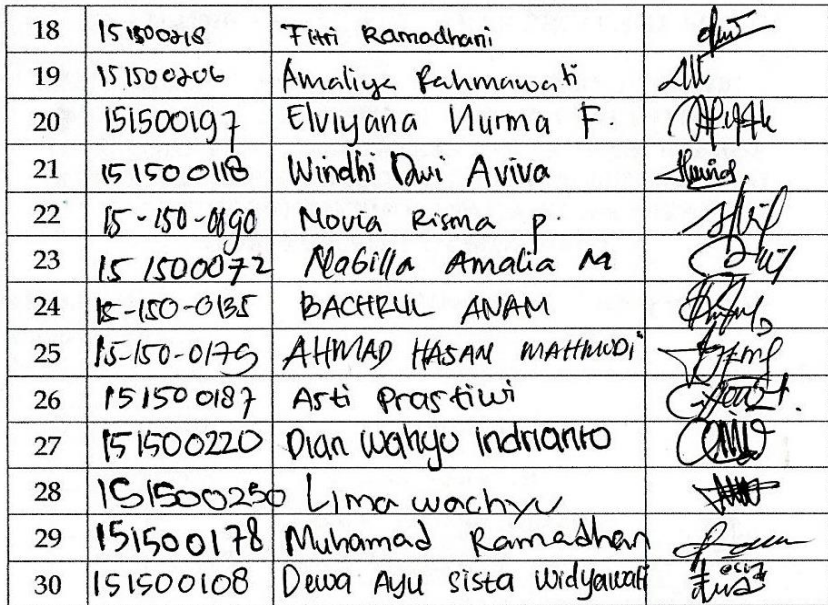 18 151500218 Fitri Ramadhani
19 151500206 Amaliya Rahmawati
20 151500197 Elviyana Nurma F.
21 151500118 Windhi Dwi Aviva
22 15-150-0190 Novia Risma p.
23 151500072 Nabilla Amalia M
24 15-150-0135 BACHRUL ANAM
25 15-150-0179 AHMAD HASAN MAHMUDI
26 151500187 Asti Prastiwi
27 151500220 Dian wahyu indrianto
28 151500250 Lima wachyu
29 151500178 Muhamad Ramadhan
30 151500108 Dewa Ayu Sista Widyawati